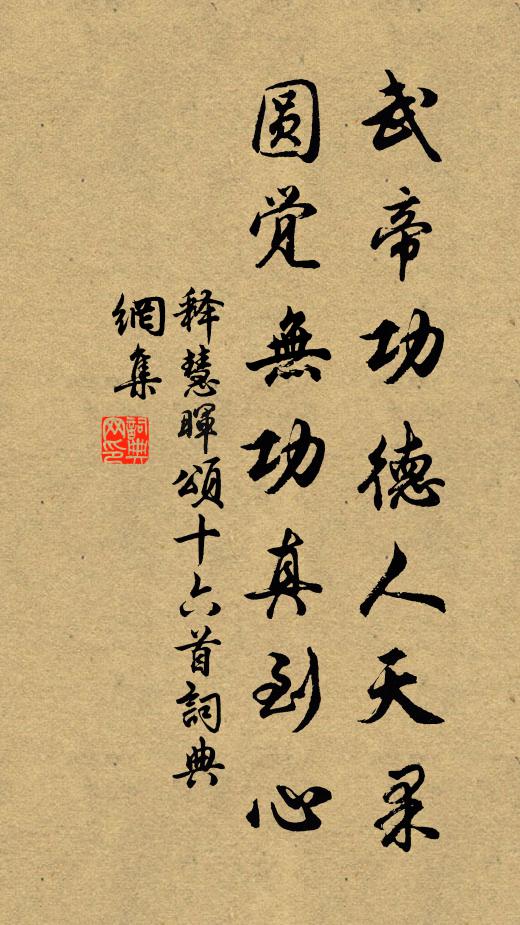 武帝功德人天果
圆觉無功真到心
释慧暉頌十六首詞典
網集
詞典网印